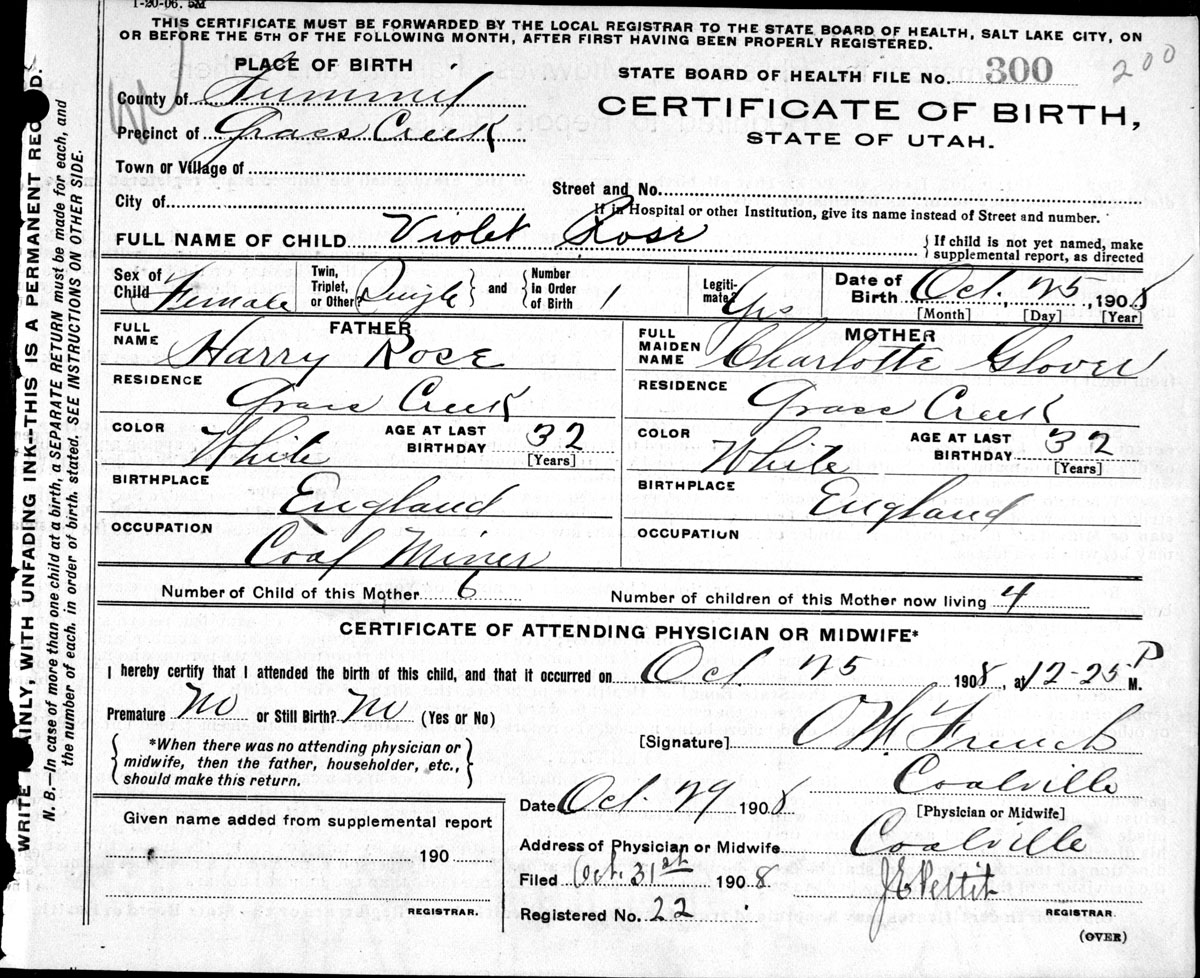 1-20-06. 5M
THIS CERTIFICATE MUST BE FORWARDED BY THE LOCAL REGISTRAR TO THE STATE BOARD OF HEALTH, SALT LAKE CITY, ON
OR BEFORE THE 5TH OF THE FOLLOWING MONTH, AFTER FIRST HAVING BEEN PROPERLY REGISTERED.
PLACE OF BIRTH
STATE BOARD OF HEALTH FILE No. 300 200
County of Summit
CERTIFICATE OF BIRTH,
STATE OF UTAH.
Precinct of Grass Creek
Town or Village of
Street and No.
City of
If in Hospital or other Institution, give its name instead of Street and number.
FULL NAME OF CHILD Violet Rose { If child is not yet named, make supplemental report, as directed
Sex of Child Female Twin, Triplet, or Other? Single } and { Number In Order of Birth 1 Legiti-mate? Yes Date of Birth Oct. 25, 1908
[Month] [Day] [Year]
FATHER
FULL NAME Harry Rose
RESIDENCE Grass Creek
COLOR White AGE AT LAST BIRTHDAY 32
[Years]
BIRTHPLACE England
OCCUPATION Coal Miner
MOTHER
FULL MAIDEN NAME Charlotte Glover
RESIDENCE Grass Creek
COLOR White AGE AT LAST BIRTHDAY 32
[Years]
BIRTHPLACE England
OCCUPATION
Number of Child of this Mother 6 Number of children of this Mother now living 4
CERTIFICATE OF ATTENDING PHYSICIAN OR MIDWIFE*
I hereby certify that I attended the birth of this child, and that it occurred on Oct 25 1908, at 12-25 P M.
Premature No or Still Birth? No (Yes or No)
*When there was no attending physician or
midwife, then the father, householder, etc.,
should make this return.
[Signature] French
Coalville
[Physician or Midwife]
Date Oct. 29 1908
Address of Physician or Midwife Coalville
Filed Oct. 31st 1908 J E Pettit
REGISTRAR.
Registered No. 22
(OVER)
Given name added from supplemental report
190
REGISTRAR.
WRITE PLAINLY WITH UNFADING INK—THIS IS A PERMANENT RECORD.
N. B.—In case of more than one child at a birth, a SEPARATE RETURN must be made for each, and
the number of each, in order of birth, stated. SEE INSTRUCTIONS ON OTHER SIDE.